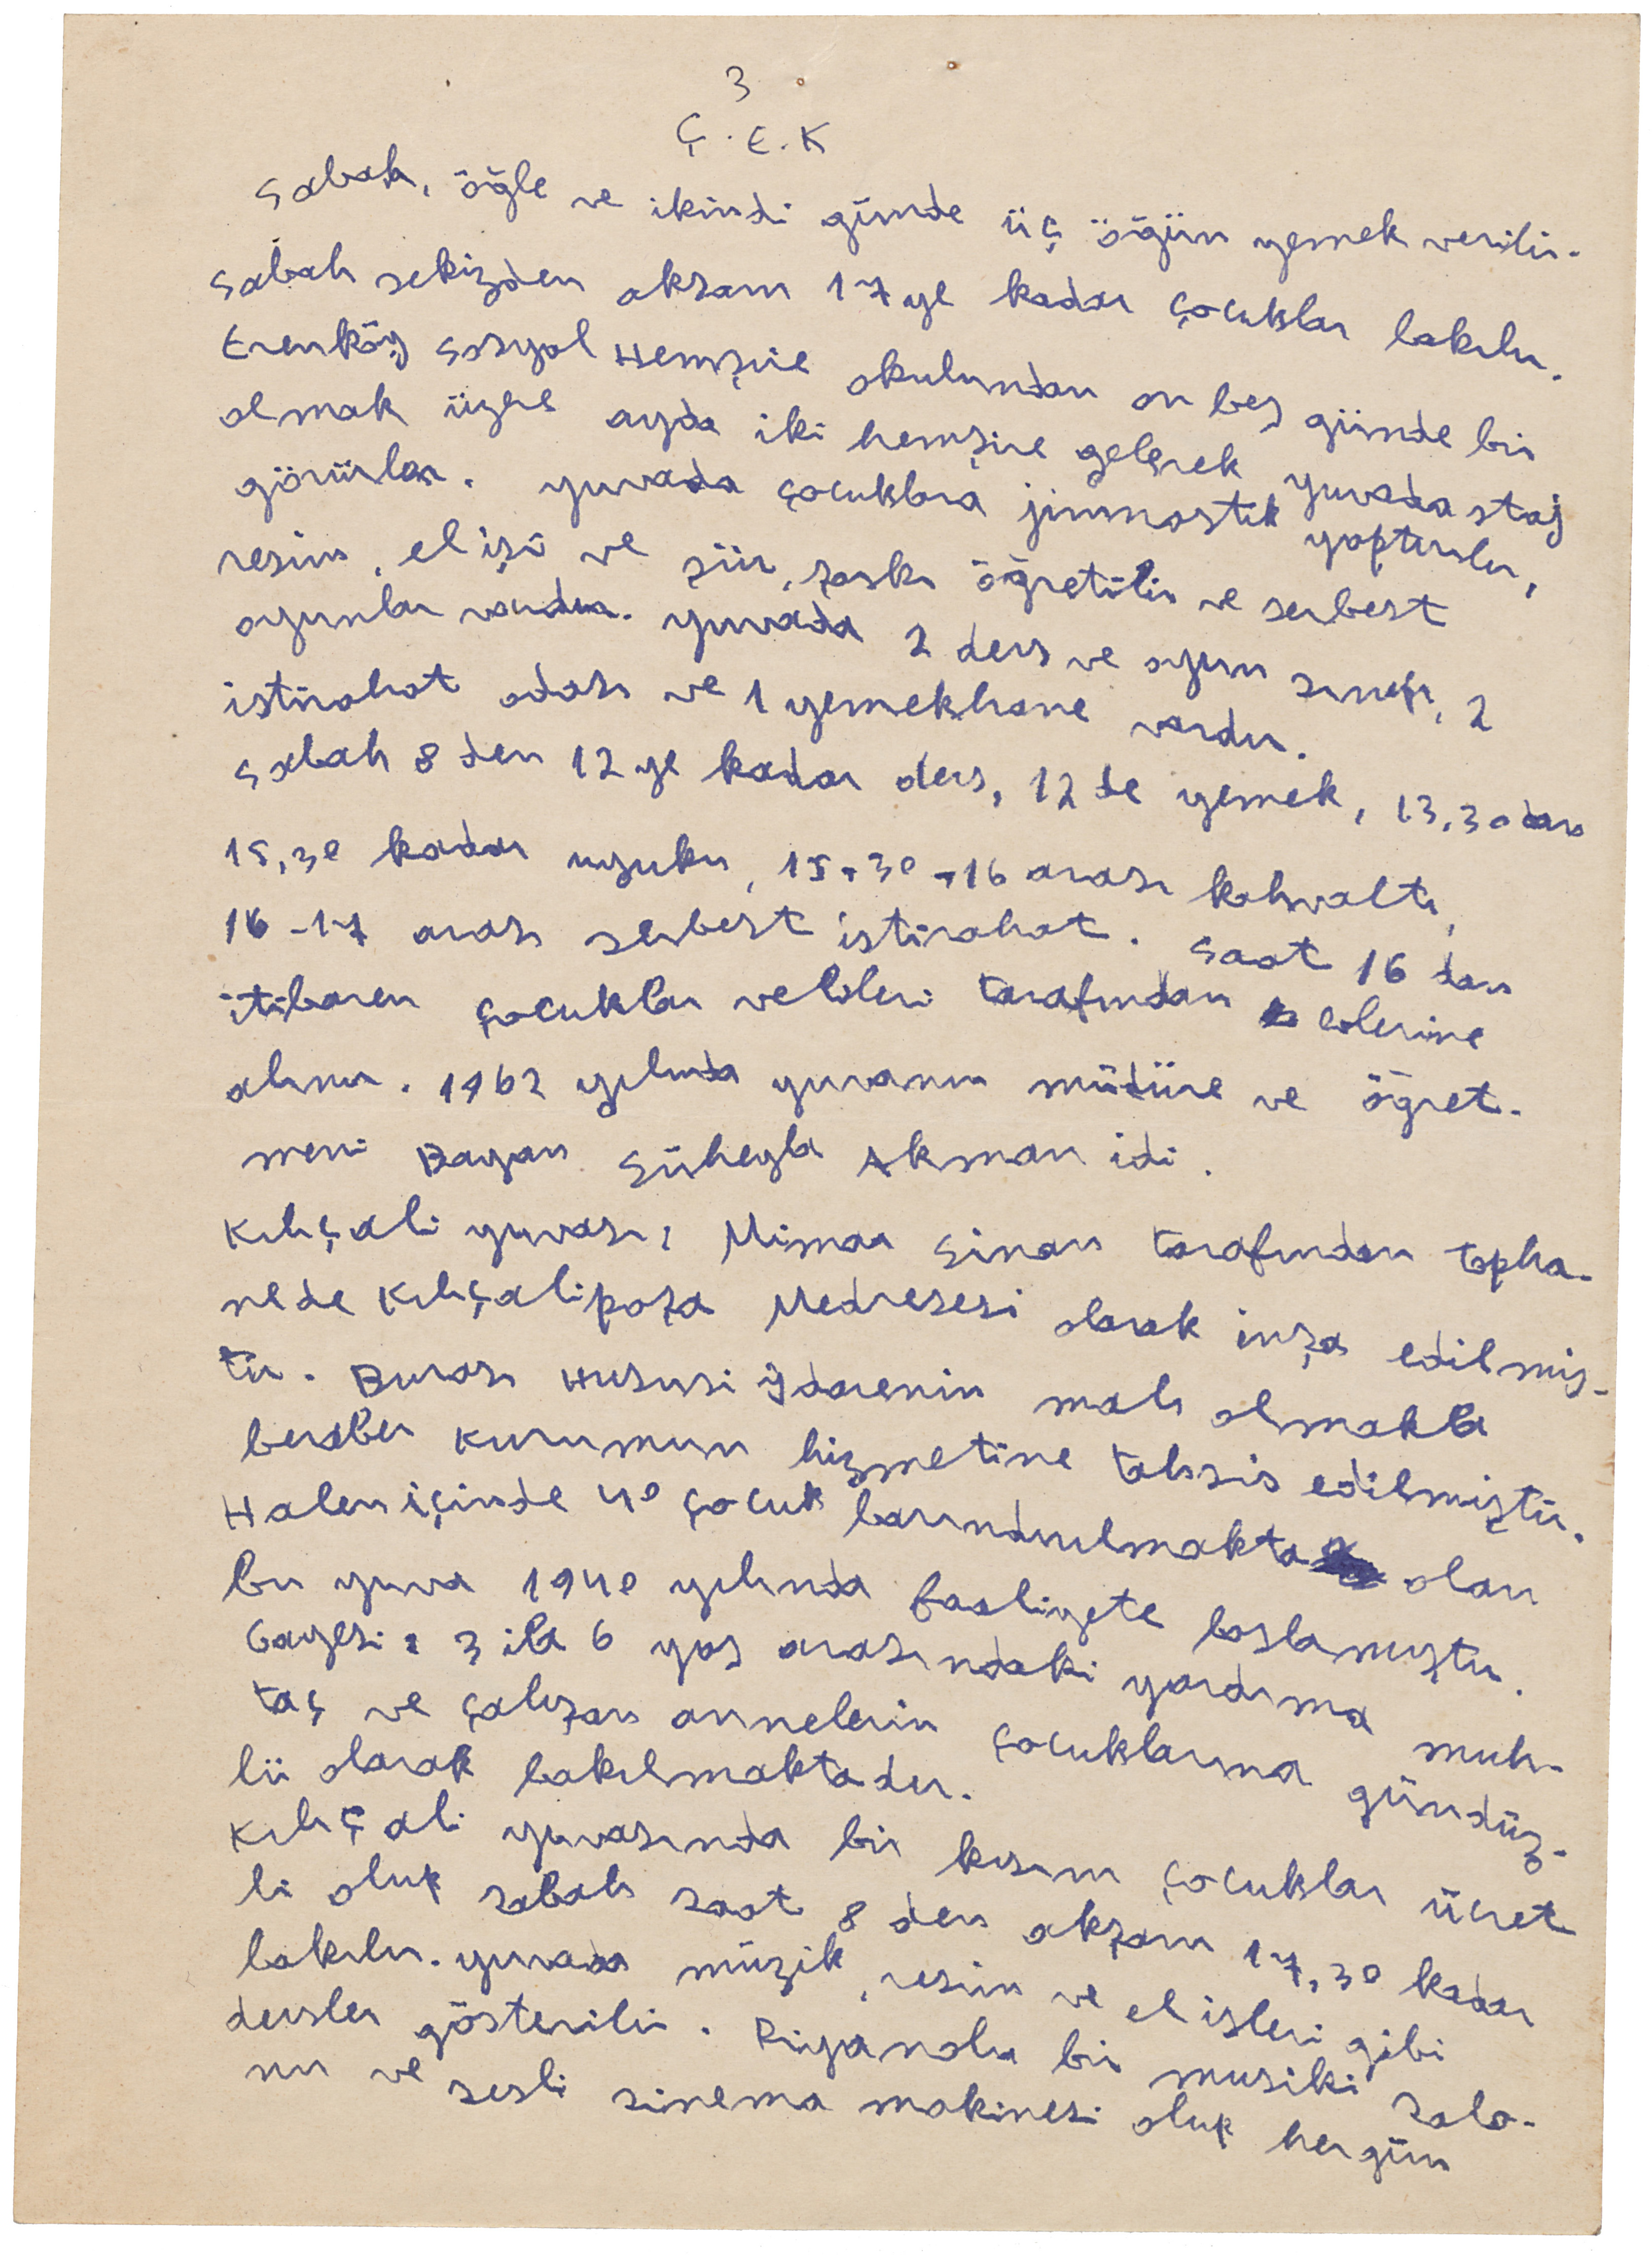 3
Ç.E.K
Sabah, öğle ve ikindi günde üç öğün yemek verilir.
Sabah sekizden akşam 17 ye kadar çocuklar bakılır.
Erenköy Sosyal Hemşire okulundan on beş günde bir
olmak üzere ayda iki hemşire gelerek yuvada staj
görürler. Yuvada çocuklara jimnastik yaptırılır,
resim, el işi ve şiir, şarkı öğretilir ve serbest
oyunlar vardır. Yuvada 2 ders ve oyun sınıfı, 2
istirahat odası ve 1 yemekhane vardır.
Sabah 8 den 12 ye kadar ders, 12 de yemek, 13,30 dan
15,30 kadar uyuku, 15,30-16 arası kahvaltı,
16-17 arası serbest istirahat. Saat 16 dan
itibaren çocuklar velileri tarafından evlerine
alınır. 1962 yılında yuvanın müdüre ve öğret-
meni Bayan Süheyla Akman idi.
Kılıçali yuvası: Mimar Sinan tarafından topha-
nede Kılıçalipaşa Medresesi olarak inşa edilmiş-
tir. Burası Hususi İdarenin malı olmakla
beraber kurumun hizmetine tahsis edilmiştir.
Halen içinde 40 çocuk barındırılmakta olan
bu yuva 1940 yılında faaliyete başlamıştır.
Gayesi: 3 ila 6 yaş arasındaki yardıma muh-
taç ve çalışan annelerin çocuklarına gündüz-
lü olarak bakılmaktadır.
Kılıç ali yuvasında bir kısım çocuklar ücret
li olup sabah saat 8 den akşam 17,30 kadar
bakılır. Yuvada müzik, resim ve el işleri gibi
dersler gösterilir. Piyanolu bir musiki salo-
nu ve sesli sinema makinesi olup hergün